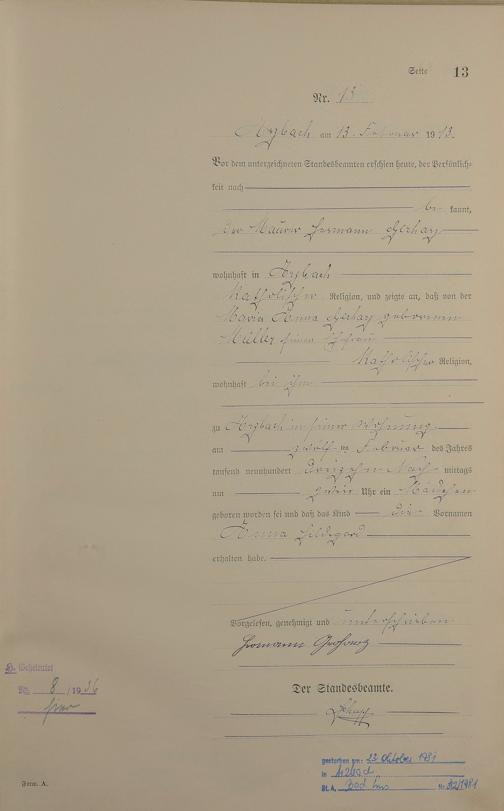 Seite 13
Nr. 13
Arzbach am 13. Februar 1913.
Vor dem unterzeichneten Standesbeamten erschien heute, der Persönlich-
keit nach
be kannt,
der Maurer Hermann
wohnhaft in Arzbach
Katholischer Religion, und zeigte an, daß von der
Maria Anna geborenen
Müller seiner Ehefrau
Katholischer Religion,
wohnhaft bei ihm
zu Arzbach in seiner Wohnung
am zwölf ten Februar des Jahres
tausend neunhundert dreizehn Nach mittags
um Uhr ein Mädchen
geboren worden sei und daß das Kind die Vornamen
Anna Hildegard
erhalten habe.
Vorgelesen, genehmigt und unterschrieben
Hermann
Der Standesbeamte.
H. Geheiratet
Nr. 8 / 1936
hier
gestorben am: 23 Oktober 1981
in
St. A. Bad Ems Nr.
Form. A.